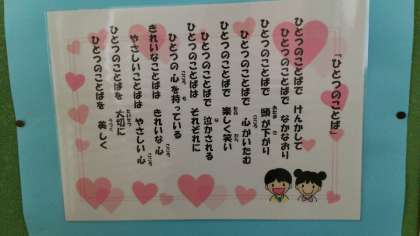 「ひとつのことば」
ひとつのことばで けんかして
ひとつのことばで なかなおり
ひとつのことばで 頭が下がり
ひとつのことばで 心がいたむ
ひとつのことばで 楽しく笑い
ひとつのことばで 泣かされる
ひとつのことばは それぞれに
ひとつの心を持っている
きれいなことばは きれいな心
やさしいことばは やさしい心
ひとつのことばを 大切に
ひとつのことばを 美しく